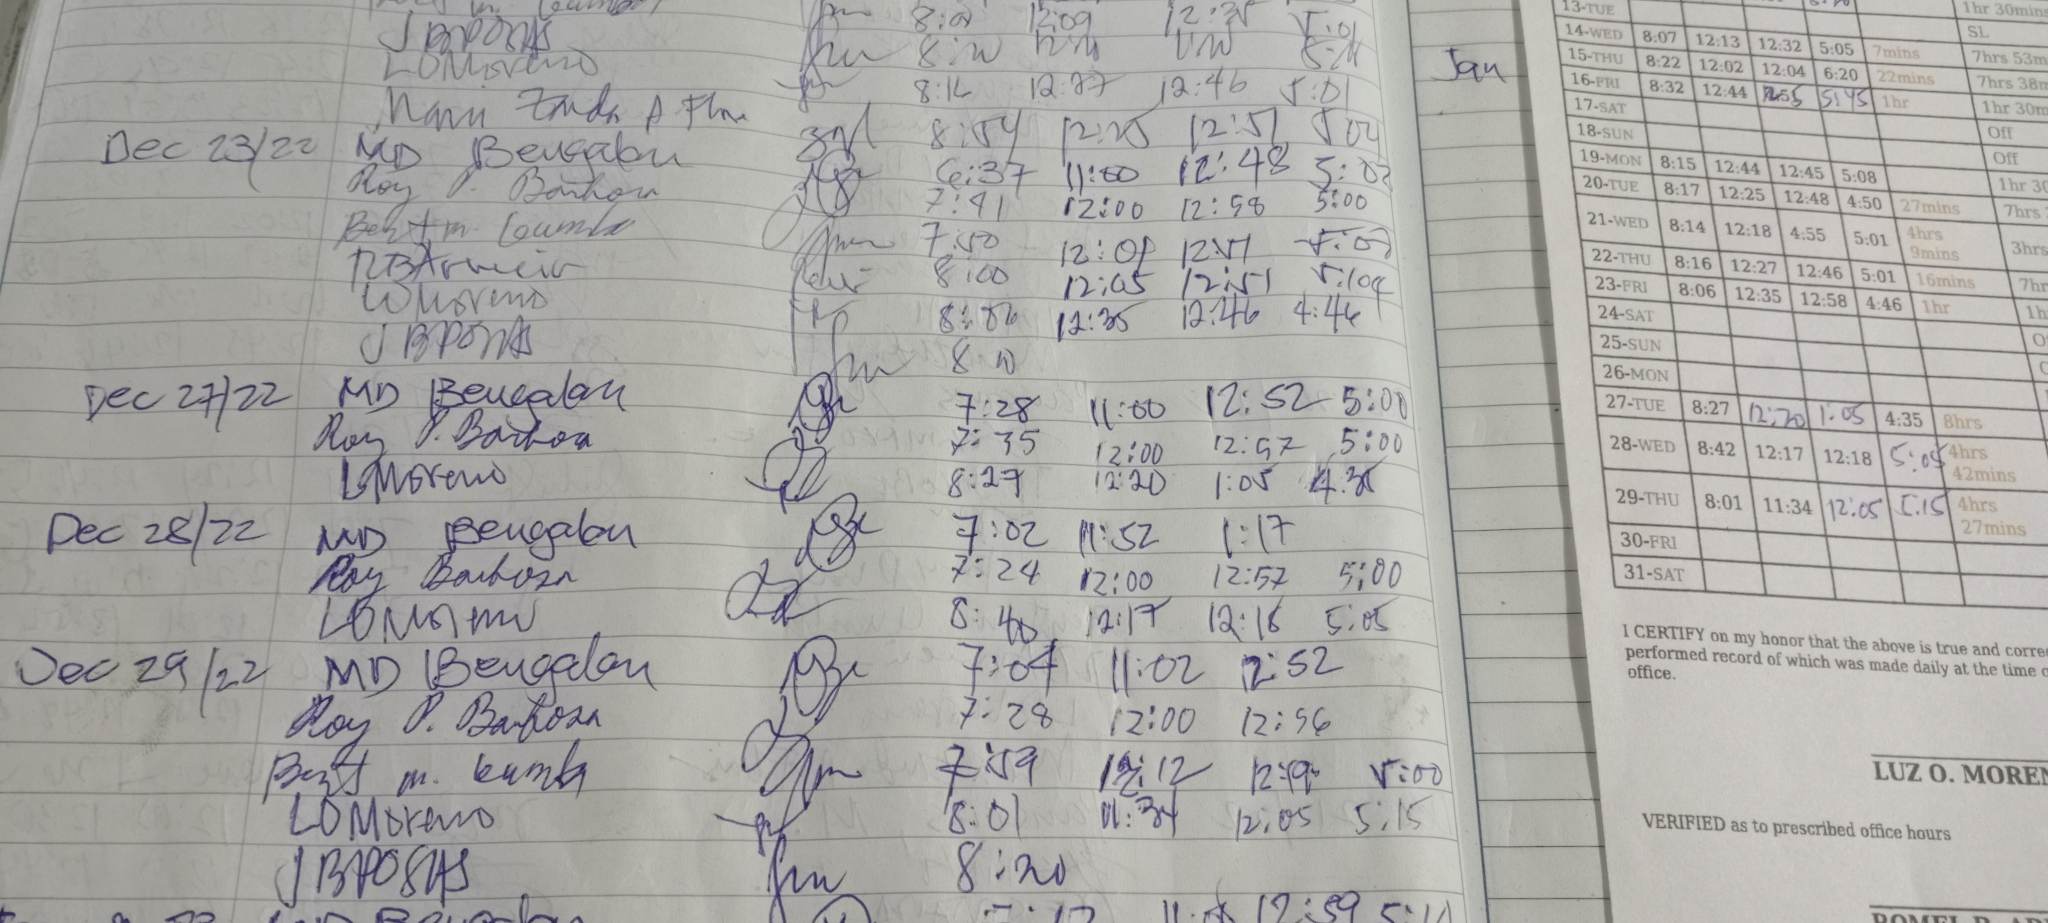 8:01 12:09 12:38 5:01
JBPOSTAS 8:20
LOMoreno 8:16 12:27 12:46 5:01
8:54 12:25 12:51 5:02
Dec 23/22 MD Bengalon 6:37 11:00 12:48 5:02
Roy P. Barboza 7:41 12:00 12:58 5:00
Bert m. Gumba 7:50 12:01 12:51 5:00
8:00 12:05 12:51 5:04
LOMoreno 8:06 12:35 12:46 4:46
JBPOSTAS 8:20
Dec 27/22 MD Bengalon 7:28 11:00 12:52 5:00
Roy P. Barboza 7:35 12:00 12:57 5:00
LOMoreno 8:27 12:20 1:05 4:35
Dec 28/22 MD Bengalon 7:02 11:52 1:17
Roy Barboza 7:24 12:00 12:57 5:00
LOMoreno 8:40 12:17 12:18 5:05
Dec 29/22 MD Bengalon 7:04 11:02 12:52
Roy P. Barboza 7:28 12:00 12:56
Bert m. Gumba 7:59 12:12 12:59 5:00
LOMoreno 8:01 11:34 12:05 5:15
JBPOSTAS 8:20
MD Bengalon 12:59
Jan
13-TUE 1hr 30mins
14-WED 8:07 12:13 12:32 5:05 7mins SL
15-THU 8:22 12:02 12:04 6:20 22mins 7hrs 53m
16-FRI 8:32 12:44 12:55 5:45 1hr 7hrs 38m
17-SAT 1hr 30m
18-SUN Off
19-MON 8:15 12:44 12:45 5:08 Off
20-TUE 8:17 12:25 12:48 4:50 27mins 1hr 30
21-WED 8:14 12:18 4:55 5:01 4hrs 9mins 7hrs
22-THU 8:16 12:27 12:46 5:01 16mins 3hrs
23-FRI 8:06 12:35 12:58 4:46 1hr 7hr
24-SAT 1h
25-SUN
26-MON
27-TUE 8:27 12:20 1:05 4:35 8hrs
28-WED 8:42 12:17 12:18 5:05 4hrs 42mins
29-THU 8:01 11:34 12:05 5:15 4hrs 27mins
30-FRI
31-SAT
I CERTIFY on my honor that the above is true and corre
performed record of which was made daily at the time o
office.
LUZ O. MOREN
VERIFIED as to prescribed office hours